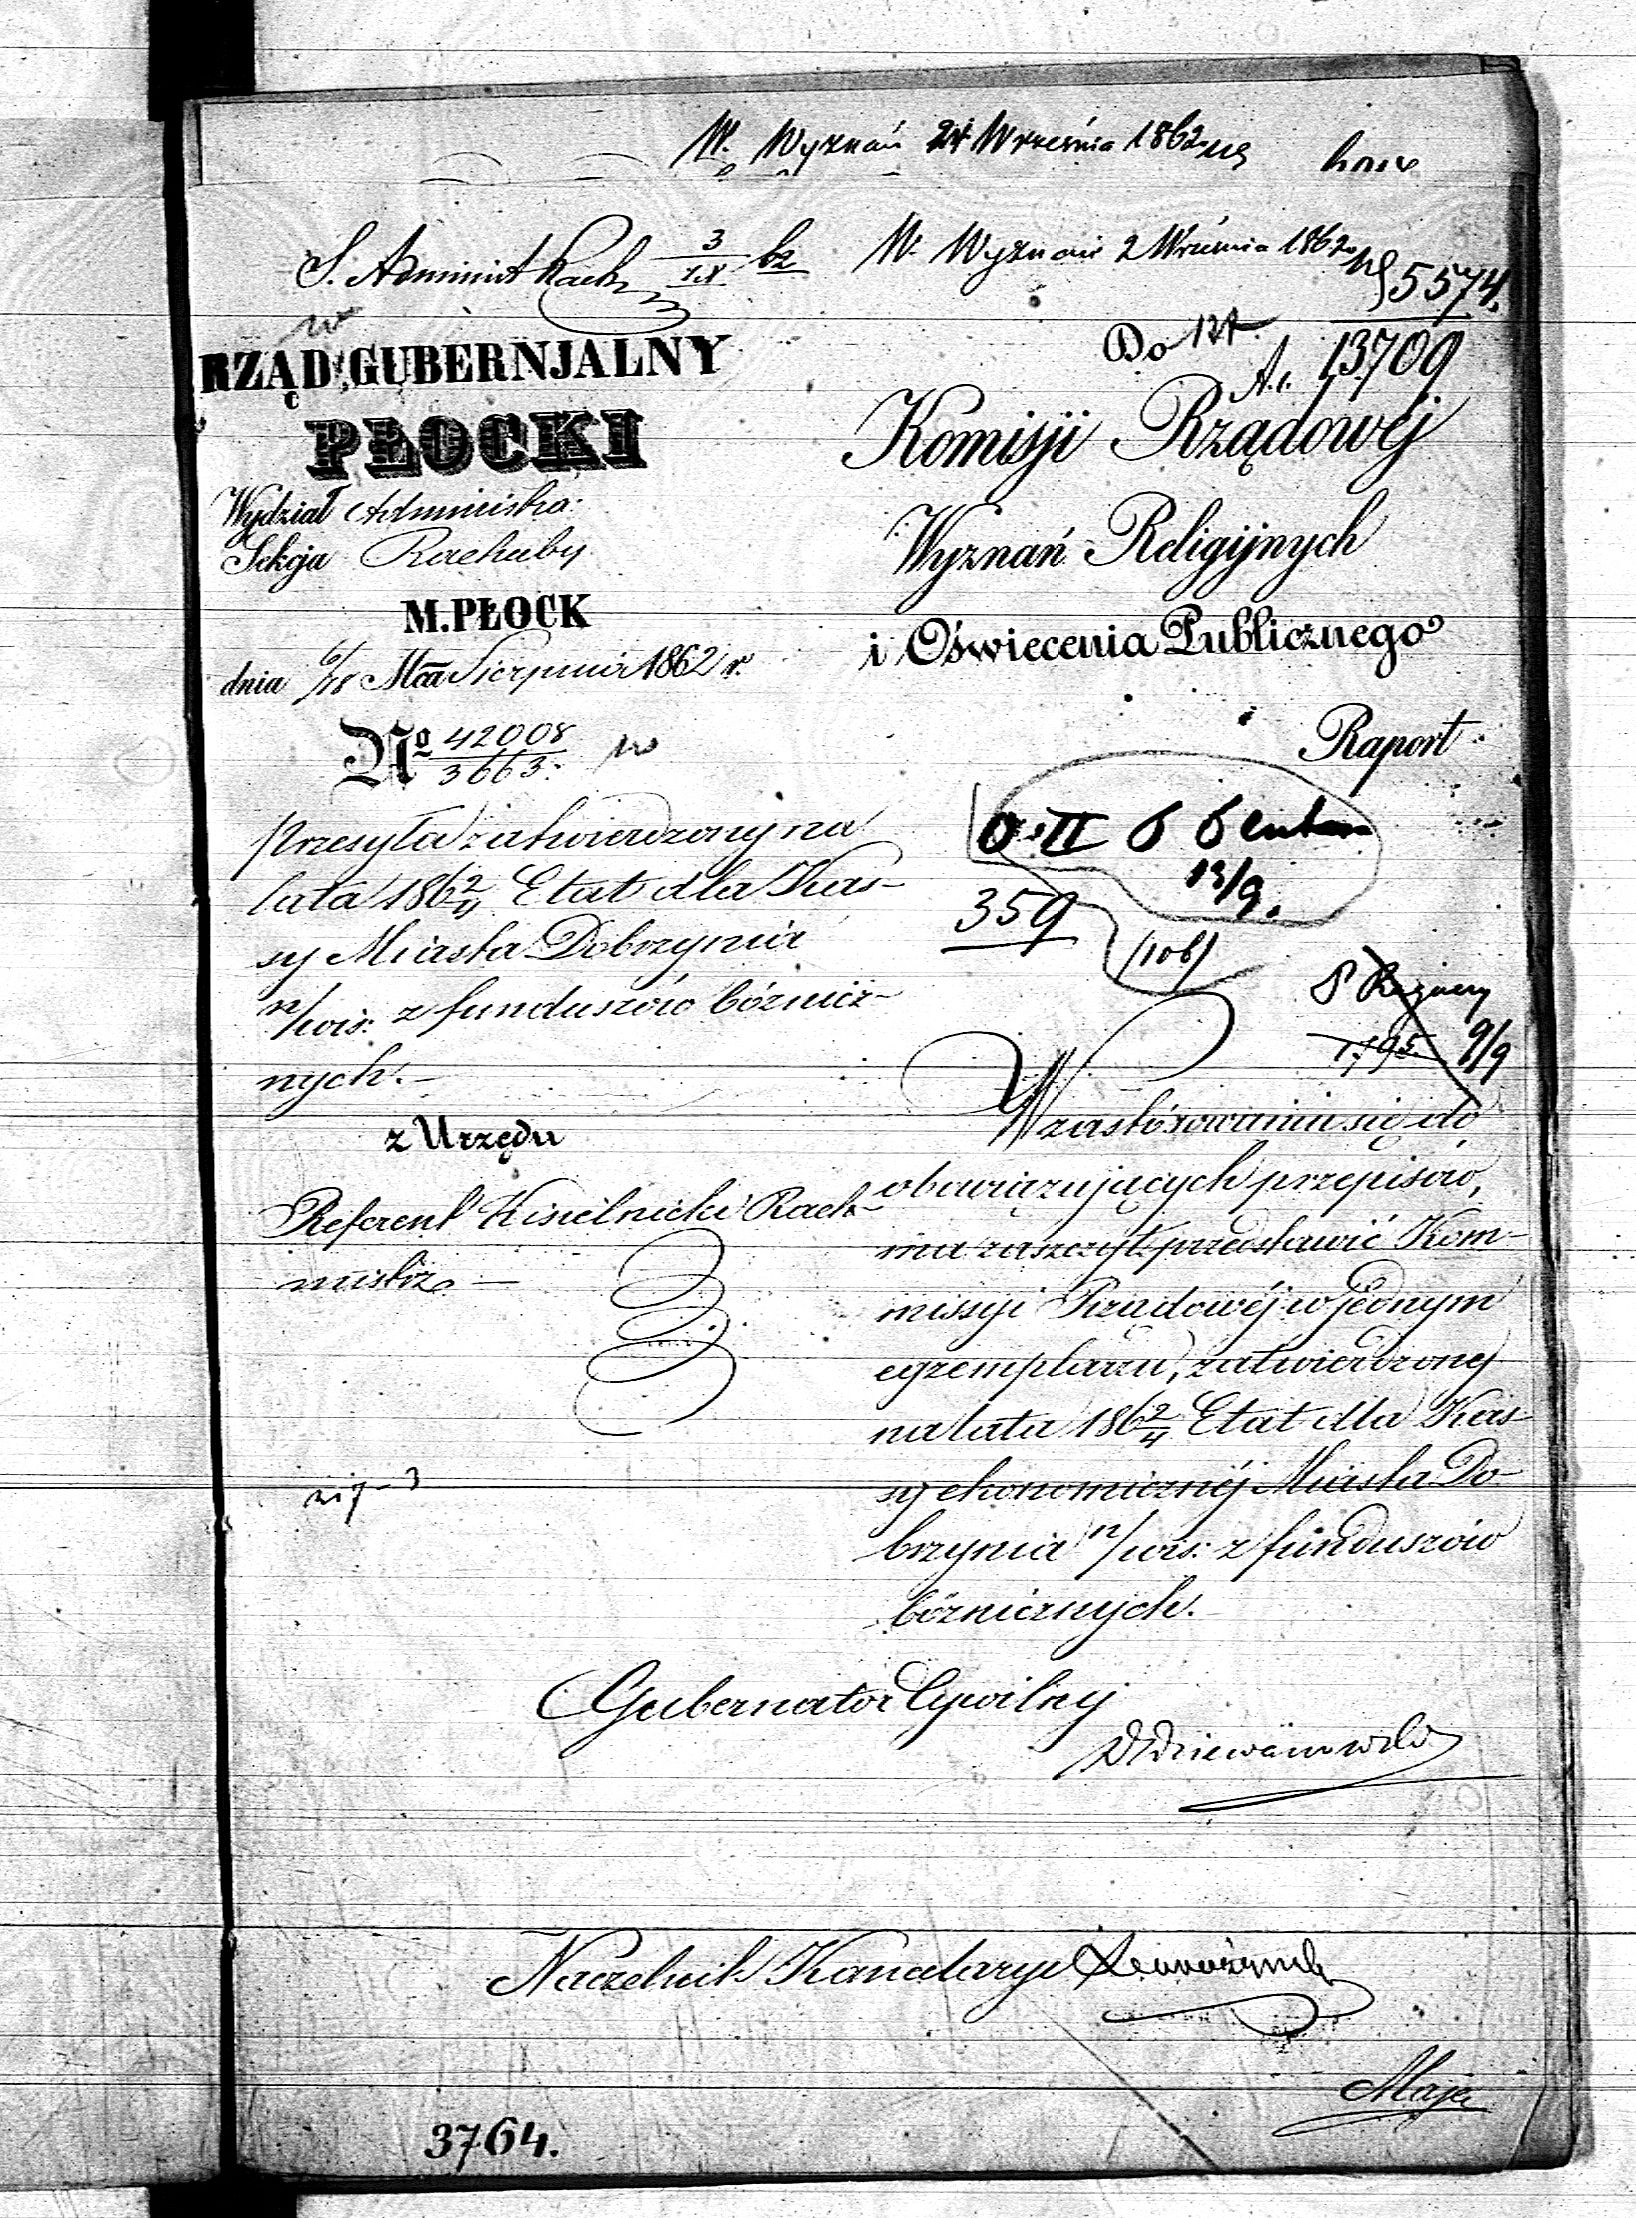 W. Wyznań 24 Września 1862
S. Administ Rach 3/IX
W. Wyznań 2 Września 1862
5574.
13709
RZĄD GUBERNJALNY
PŁOCKI
Wydział Administra:
Sekcja Rachuby
M. PŁOCK
dnia 6/18 Mca Sierpnia 1862 r.
No 42008/3663.
przesyła zatwierdzony na
lata 1862/4 Etat dla Kas-
sy Miasta Dobrzynia
n/Wis: z funduszów bóżnicz-
nych.-
z Urzędu
Referent Kisielnicki Rach-
mistrz
Do
Komisji Rządowej
Wyznań Religijnych
i Oświecenia Publicznego
Raport
359
(106)
1795 9/9
W zastósowaniu się do
obowiązujących przepisów,
ma zaszczyt przedstawić Kom-
missyi Rządowéj w jednym
egzemplarzu, zatwierdzony
na lata 1862/4 Etat dla Kas-
sy ekonomicznéj Miasta Do-
brzynia n/Wis: z funduszów
bóżnicznych.
Gubernator Cywilny
Dziewanowski
Naczelnik Kancelaryi
3764.